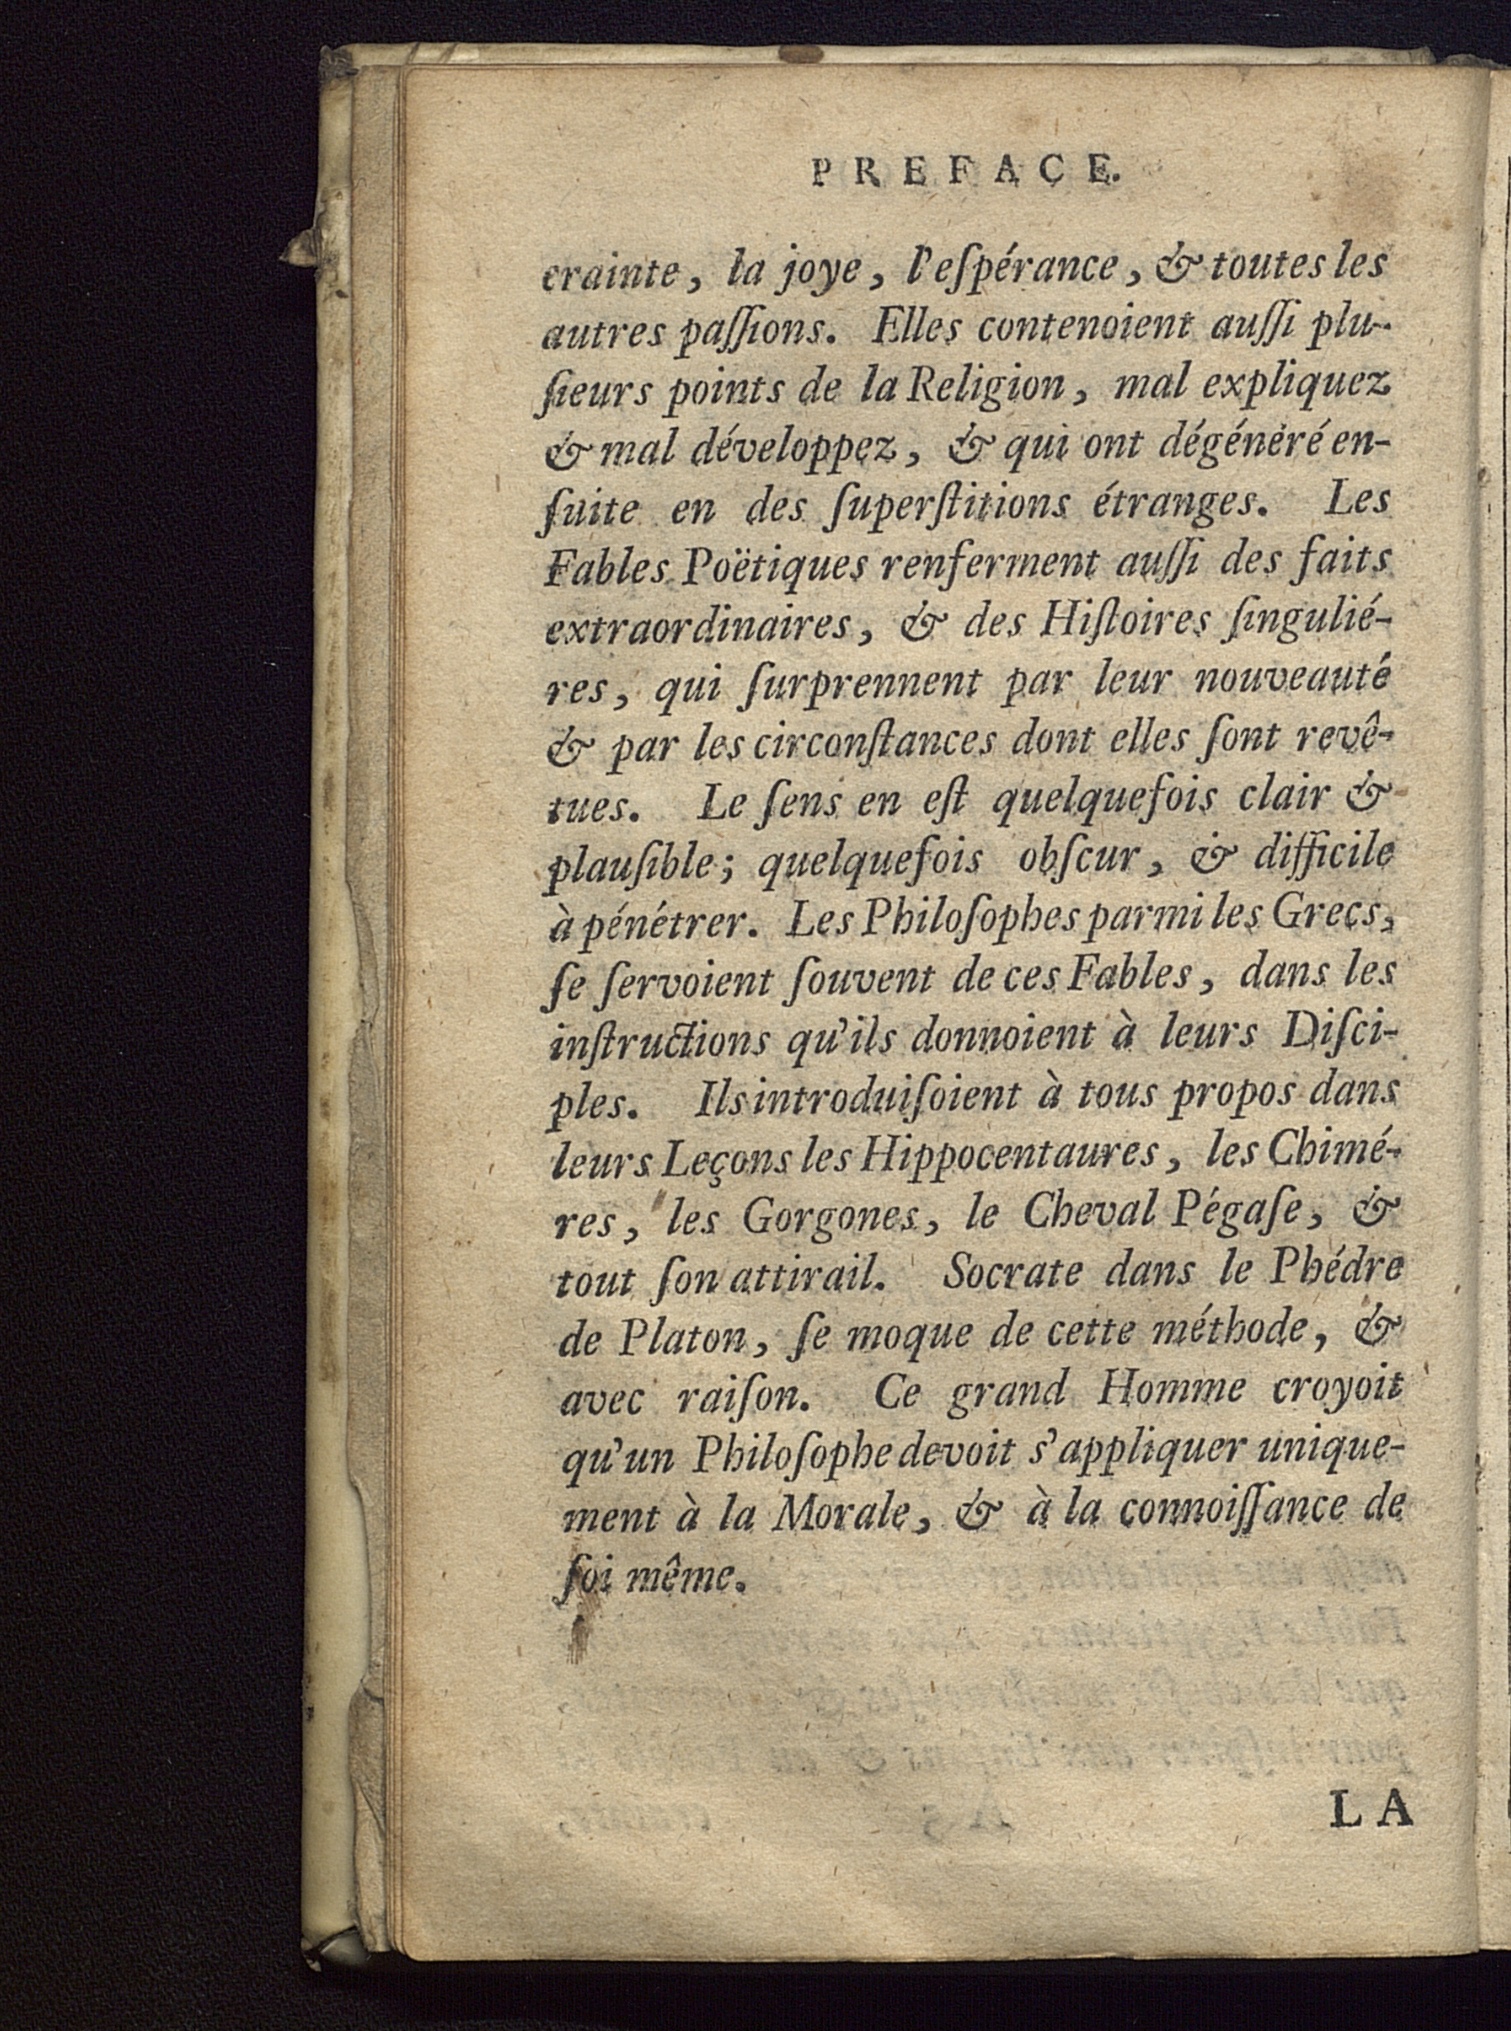 PREFACE.
crainte, la joye, l'eſpérance, & toutes les
autres paſſions. Elles contenoient auſſi plu-
ſieurs points de la Religion, mal expliquez
& mal développez, & qui ont dégénéré en-
ſuite en des ſuperſtitions étranges. Les
Fables Poëtiques renferment auſſi des faits
extraordinaires, & des Hiſtoires ſingulié-
res, qui ſurprennent par leur nouveauté
& par les circonſtances dont elles ſont revê-
tues. Le ſens en eſt quelquefois clair &
plauſible; quelquefois obſcur, & difficile
à pénétrer. Les Philoſophes parmi les Grecs,
ſe ſervoient ſouvent de ces Fables, dans les
inſtructions qu'ils donnoient à leurs Diſci-
ples. Ils introduiſoient à tous propos dans
leurs Leçons les Hippocentaures, les Chimé-
res, les Gorgones, le Cheval Pégaſe, &
tout ſon attirail. Socrate dans le Phédre
de Platon, ſe moque de cette méthode, &
avec raiſon. Ce grand Homme croyoit
qu'un Philoſophe devoit s'appliquer unique-
ment à la Morale, & à la connoiſſance de
ſoi même.
LA